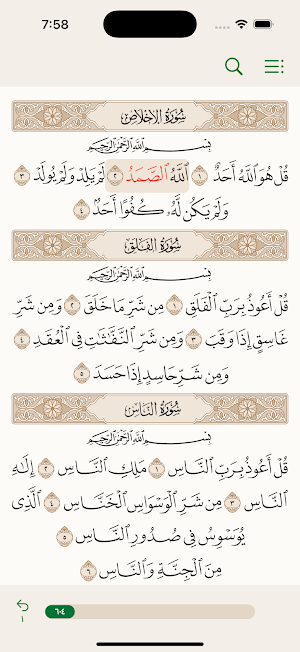 7:58
سُورَةُ الإِخْلَاصِ
بِسْمِ اللَّهِ الرَّحْمَٰنِ الرَّحِيمِ
قُلْ هُوَ ٱللَّهُ أَحَدٌ ١ ٱللَّهُ ٱلصَّمَدُ ٢ لَمْ يَلِدْ وَلَمْ يُولَدْ ٣
وَلَمْ يَكُن لَّهُۥ كُفُوًا أَحَدٌۢ ٤
سُورَةُ الفَلَقِ
بِسْمِ اللَّهِ الرَّحْمَٰنِ الرَّحِيمِ
قُلْ أَعُوذُ بِرَبِّ ٱلْفَلَقِ ١ مِن شَرِّ مَا خَلَقَ ٢ وَمِن شَرِّ
غَاسِقٍ إِذَا وَقَبَ ٣ وَمِن شَرِّ ٱلنَّفَّٰثَٰتِ فِى ٱلْعُقَدِ ٤
وَمِن شَرِّ حَاسِدٍ إِذَا حَسَدَ ٥
سُورَةُ النَّاسِ
بِسْمِ اللَّهِ الرَّحْمَٰنِ الرَّحِيمِ
قُلْ أَعُوذُ بِرَبِّ ٱلنَّاسِ ١ مَلِكِ ٱلنَّاسِ ٢ إِلَٰهِ
ٱلنَّاسِ ٣ مِن شَرِّ ٱلْوَسْوَاسِ ٱلْخَنَّاسِ ٤ ٱلَّذِى
يُوَسْوِسُ فِى صُدُورِ ٱلنَّاسِ ٥
مِنَ ٱلْجِنَّةِ وَٱلنَّاسِ ٦
٦٠٤
١